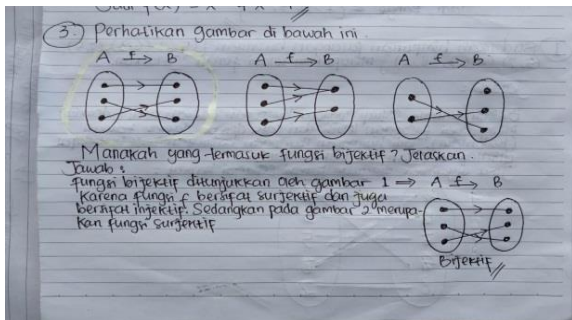 3. Perhatikan gambar di bawah ini
A f→ B A f→ B A f→ B
Manakah yang termasuk fungsi bijektif? Jelaskan.
Jawab :
fungsi bijektif ditunjukkan oleh gambar 1 ⇒ A f→ B
karena fungsi f bersifat surjektif dan juga
bersifat injektif. Sedangkan pada gambar 2 merupa-
kan fungsi surjektif
Bijektif //